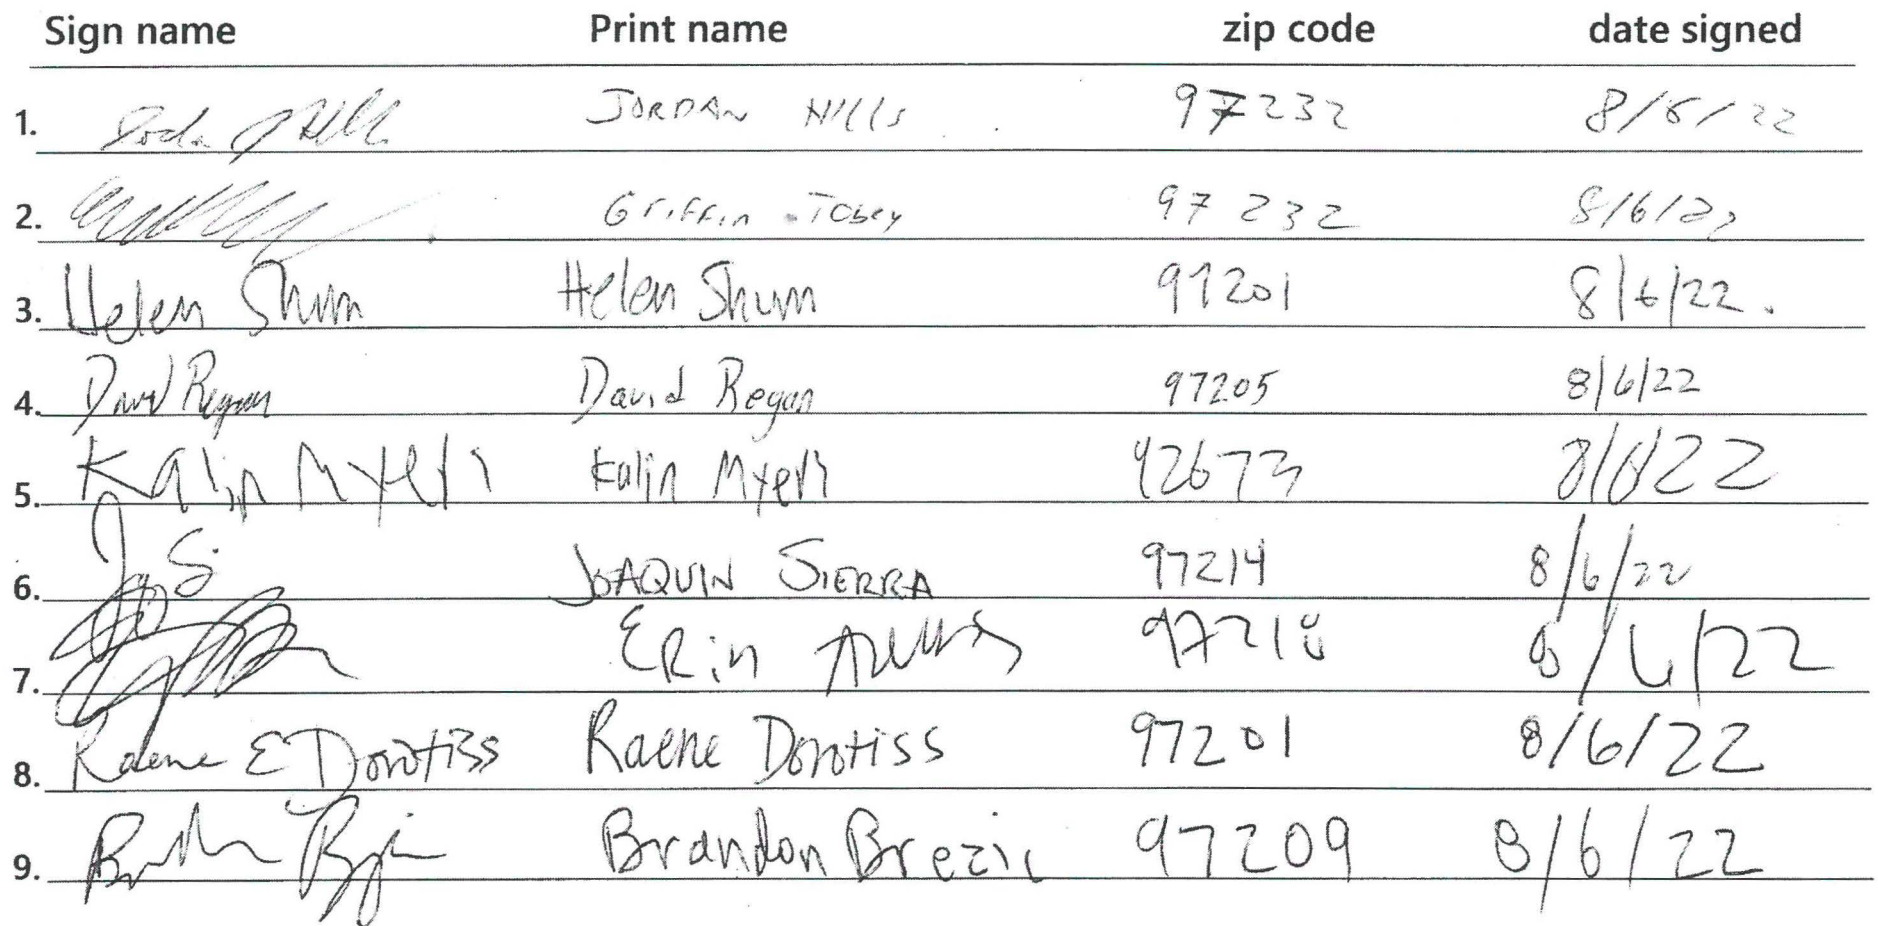 Sign name Print name zip code date signed
1. JORDAN Hills 97232 8/6/22
2. Griffin Tobey 97232 8/6/22
3. Helen Shum Helen Shum 97201 8/6/22.
4. David Regan David Regan 97205 8/6/22
5. Kalin Myers Kalin Myers 92673 8/6/22
6. JOAQUIN SIERRA 97214 8/6/22
7. ERin 97218 8/6/22
8. Raene E Dorotiss Raene Dorotiss 97201 8/6/22
9. Brandon Brezic 97209 8/6/22